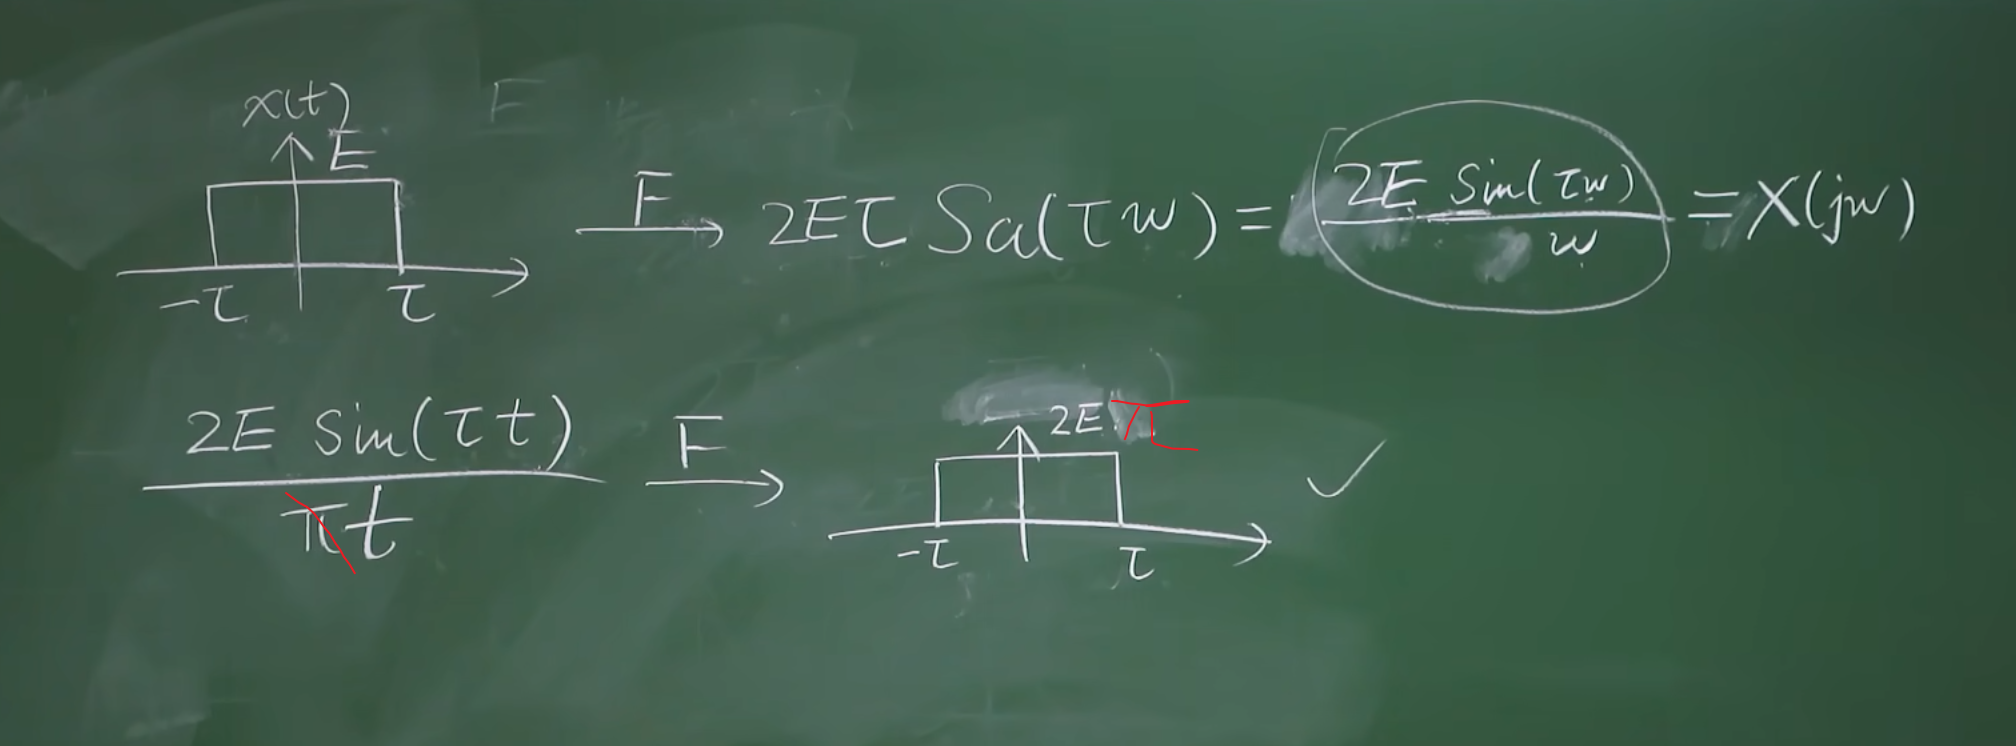 x(t)
E
F
-τ τ
F 2Eτ Sa(τw) = 2E Sin(τw) / w = X(jw)
2E Sin(τt) / πt F 2E π
-τ τ